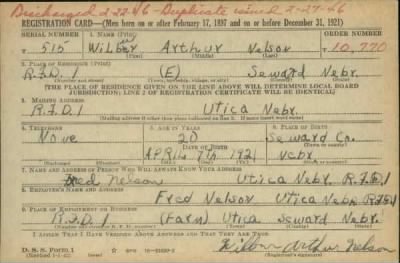 Discharged 2-22-46 - Duplicate issued 2-27-46
REGISTRATION CARD—(Men born on or after February 17, 1897 and on or before December 31, 1921)
SERIAL NUMBER 1. NAME (Print) ORDER NUMBER
T 515 Wilbur Arthur Nelson T 10,770
(First) (Middle) (Last)
2. PLACE OF RESIDENCE (Print)
R.F.D. 1 (E) Seward Nebr.
(Number and street) (Town, township, village, or city) (County) (State)
[THE PLACE OF RESIDENCE GIVEN ON THE LINE ABOVE WILL DETERMINE LOCAL BOARD
JURISDICTION; LINE 2 OF REGISTRATION CERTIFICATE WILL BE IDENTICAL]
3. MAILING ADDRESS
R.F.D. 1 Utica Nebr.
[Mailing address if other than place indicated on line 2. If same insert word same]
4. TELEPHONE 5. AGE IN YEARS 6. PLACE OF BIRTH
None 20 Seward Co.
DATE OF BIRTH (Town or county)
APRIL 7th 1921 Nebr
(Exchange) (Number) (Mo.) (Day) (Yr.) (State or country)
7. NAME AND ADDRESS OF PERSON WHO WILL ALWAYS KNOW YOUR ADDRESS
Fred Nelson Utica Nebr. R.F.D. 1
8. EMPLOYER'S NAME AND ADDRESS
Fred Nelson Utica Nebr. R.F.D. 1
9. PLACE OF EMPLOYMENT OR BUSINESS
R.F.D. 1 (Farm) Utica Seward Nebr.
(Number and street or R. F. D. number) (Town) (County) (State)
I AFFIRM THAT I HAVE VERIFIED ABOVE ANSWERS AND THAT THEY ARE TRUE.
D. S. S. FORM 1
(Revised 1-1-42) (over)
Wilbur Arthur Nelson
(Registrant's signature)